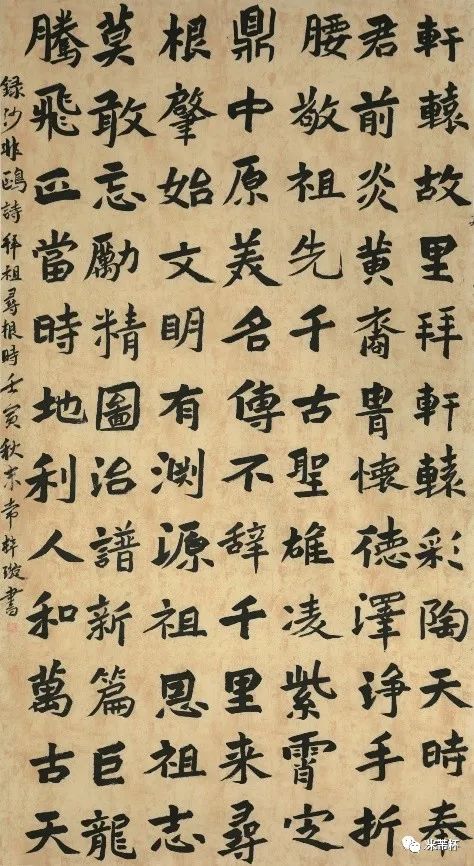 軒轅故里拜軒轅彩陶天時奉
君前炎黄裔胄懷德澤諍手折
腰敬祖先千古聖雄凌紫霄定
鼎中原美名傳不辞千里来尋
根肇始文明有渊源祖恩祖志
莫敢忘勵精圖治譜新篇巨龍
騰飛正當時地利人和萬古天
録沙非鷗詩拜祖尋根時壬寅秋末常梓璇書
米芾杯